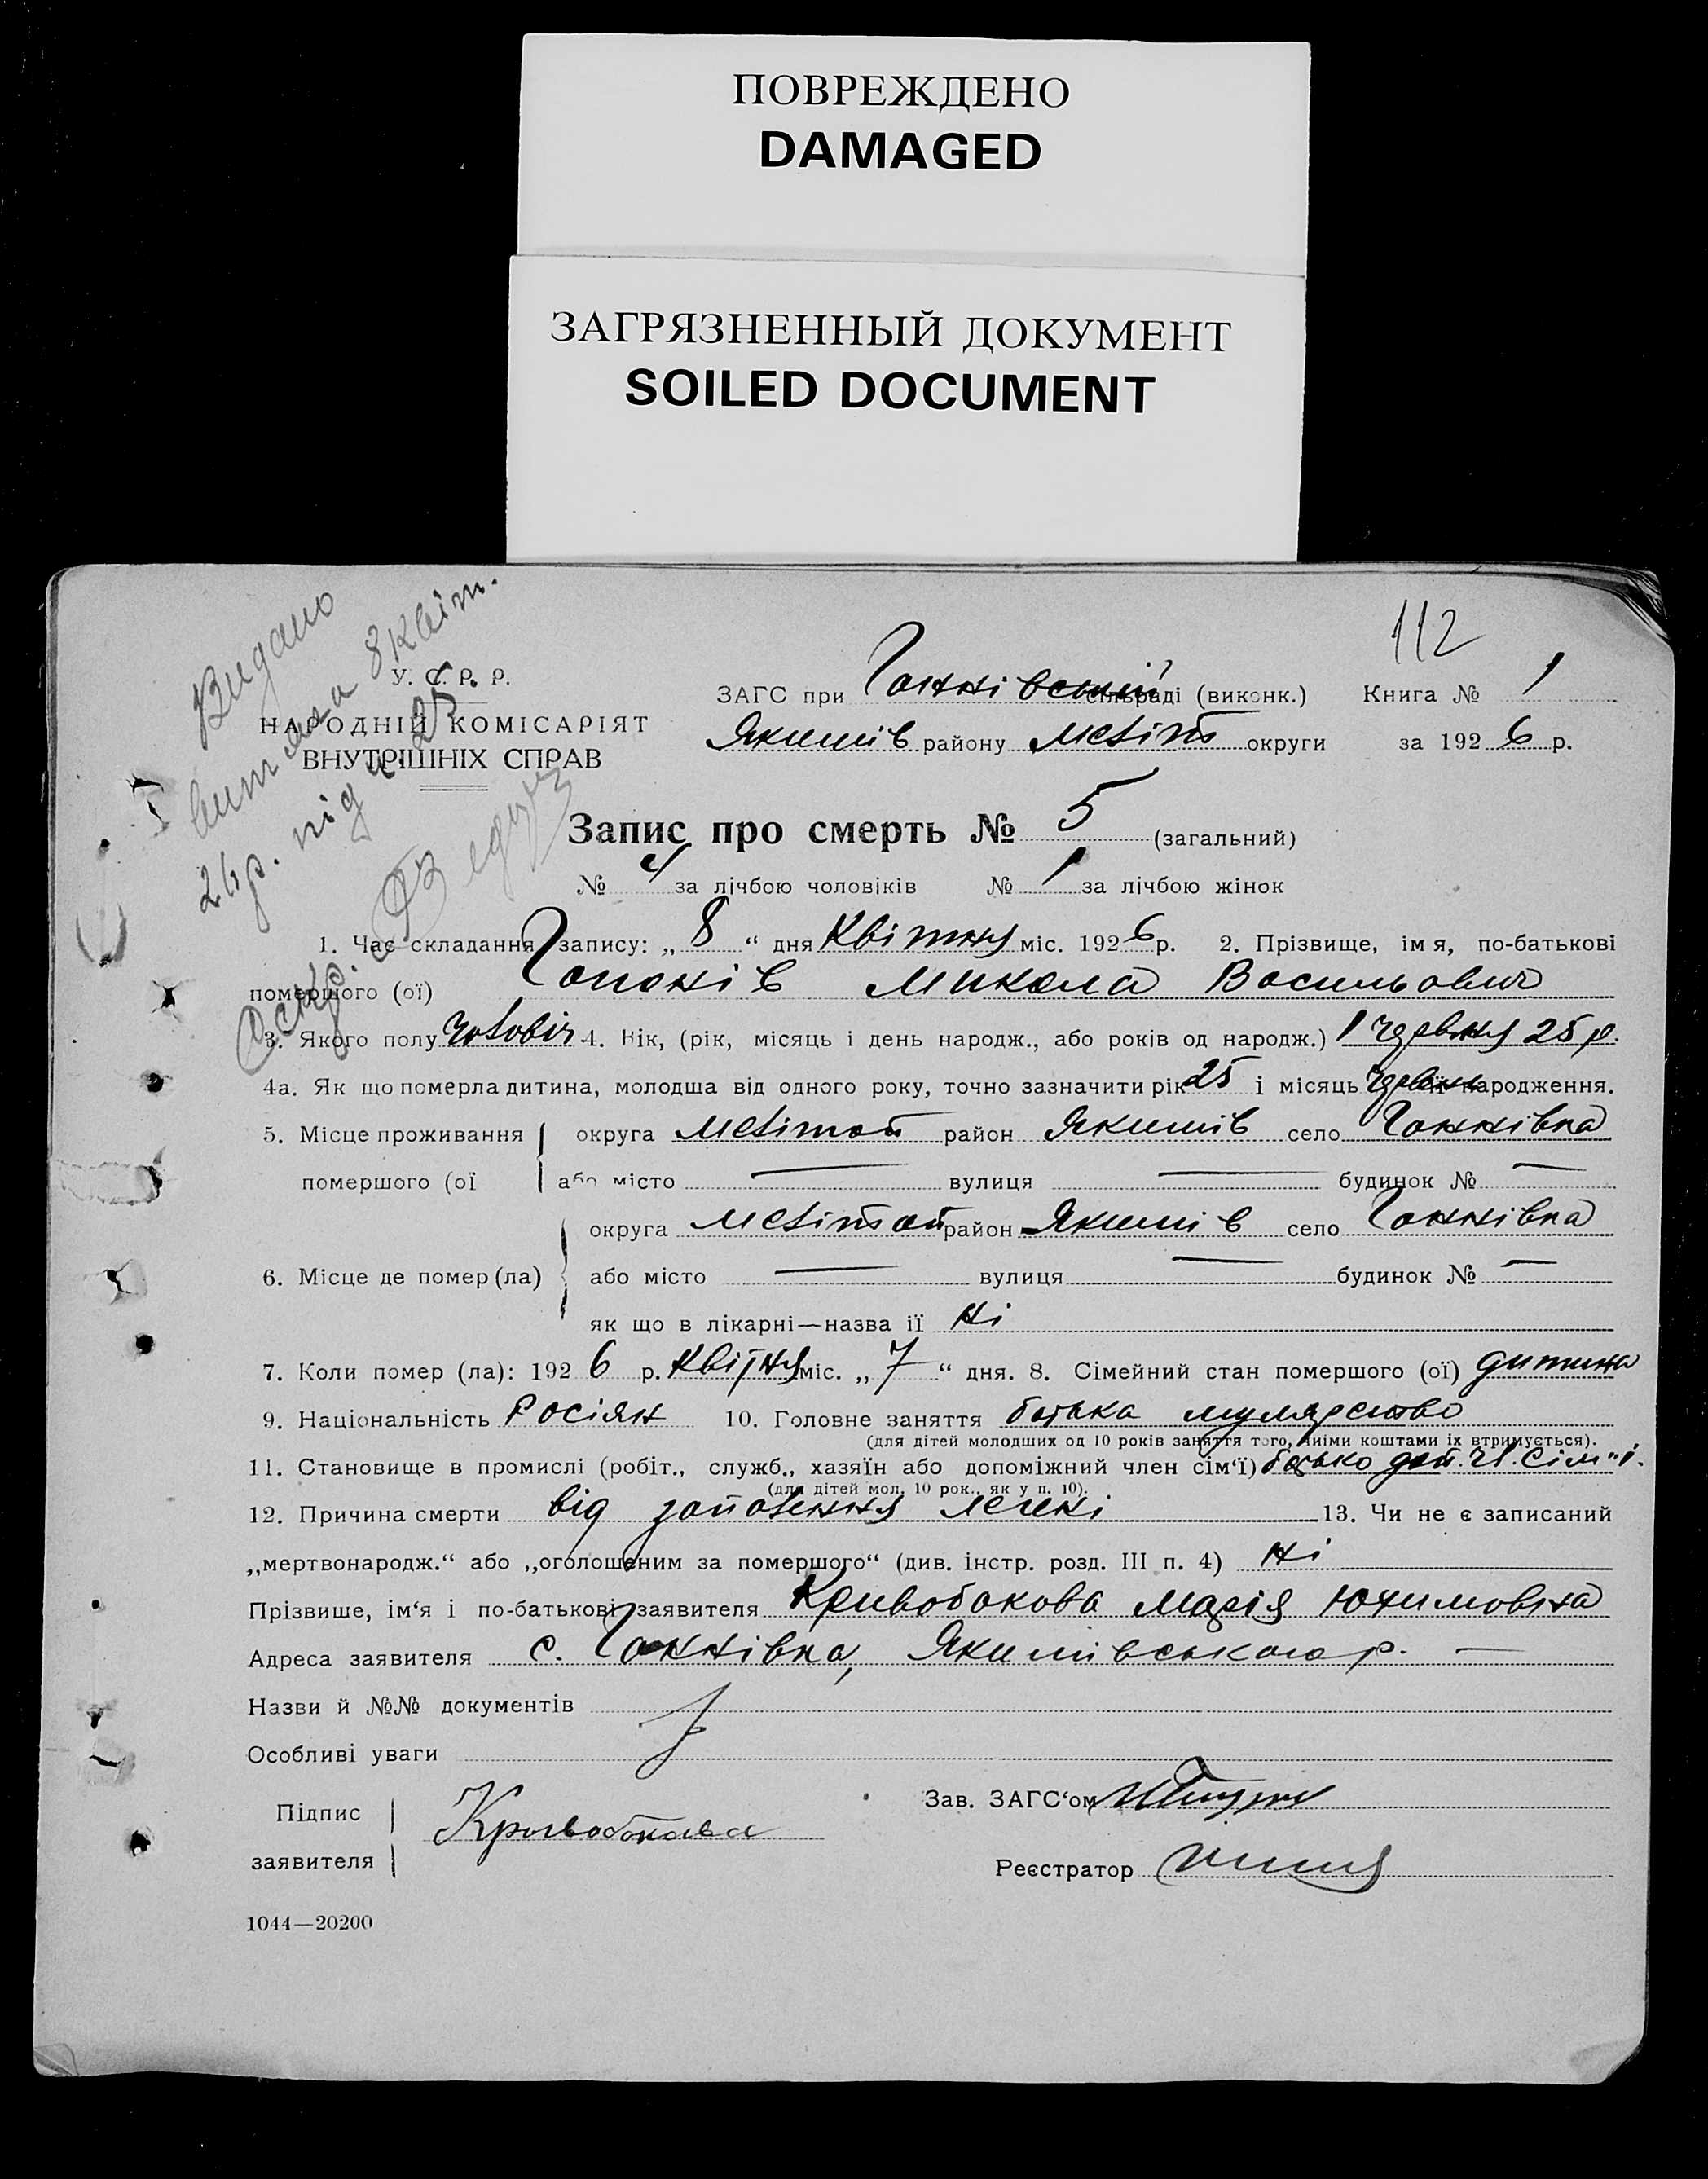 ПОВРЕЖДЕНО
DAMAGED
ЗАГРЯЗНЕННЫЙ ДОКУМЕНТ
SOILED DOCUMENT
112
Видано
витяга 8 квіт.
26р. під
У. С. Р. Р.
НАРОДНІЙ КОМІСАРІЯТ
ВНУТРІШНІХ СПРАВ
ЗАГС при Ганнівській сільраді (виконк.) Книга № 1
Якимів району Меліт округи за 192 6 р.
Запис про смерть № 5 (загальний)
№ 4 за лічбою чоловіків № 1 за лічбою жінок
1. Час складання запису: „ 8 “ дня Квітня міс. 192 6 р. 2. Прізвище, ім я, по-батькові
помершого (ої) Гапонів Микола Васильович
3. Якого полу чоловіч 4. Вік, (рік, місяць і день народж., або років од народж.) 1 червня 25 р.
4а. Як що померла дитина, молодша від одного року, точно зазначити рік 25 і місяць червень її народження.
5. Місце проживання округа Мелітоп район Якимів село Ганнівка
помершого (ої або місто — вулиця — будинок № —
округа Мелітоп район Якимів село Ганнівка
6. Місце де помер (ла) або місто — вулиця — будинок № —
як що в лікарні—назва її ні
7. Коли помер (ла): 192 6 р. Квітня міс. „ 7 “ дня. 8. Сімейний стан помершого (ої) дитина
9. Національність Росіян 10. Головне заняття батька мулярство
(для дітей молодших од 10 років заняття того, чиїми коштами їх втримується).
11. Становище в промислі (робіт., служб., хазяїн або допоміжний член сім'ї) батько доп. чл. сім"ї.
(для дітей мол. 10 рок., як у п. 10).
12. Причина смерти від запалення легені 13. Чи не є записаний
„мертвонародж.“ або „оголошеним за помершого“ (див. інстр. розд. III п. 4) ні
Прізвише, ім‘я і по-батькові заявителя Кривобокова Марія Юхимовна
Адреса заявителя с. Ганнівка, Якимівського р. —
Назви й №№ документів
Особливі уваги
Підпис
заявителя Кривобокова
Зав. ЗАГС‘ом
Реєстратор
1044—20200